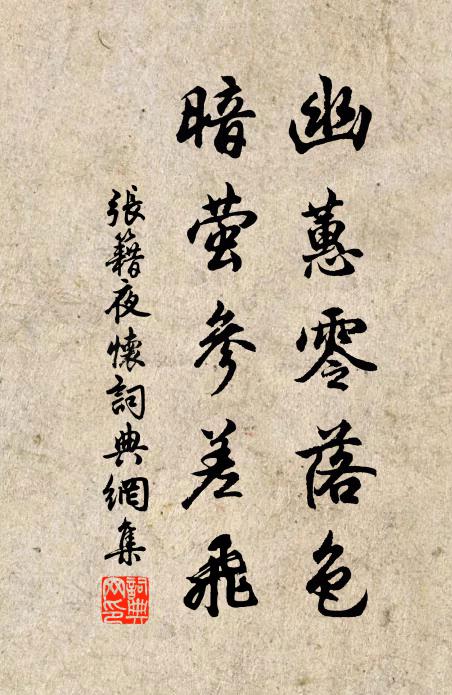 幽蕙零落色
暗萤參差飛
張籍夜懷詞典網集
詞典网印